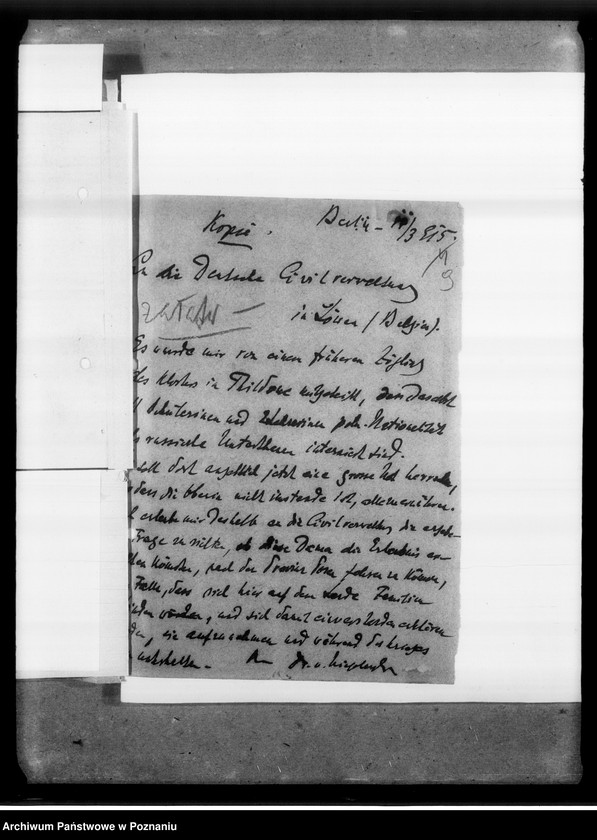 Kopie.
Berlin - 11/3 915.
An die Deutsche Civilverwaltung
in Löwen (Belgien).
Es wurde mir von einem früheren Zögling
des Klosters in Thildonc mitgeteilt, dass daselbst
Schülerinnen und Lehrerinnen poln. Nationalität
als russische Unterthanen interniert sind.
soll dort angeblich jetzt eine grosse Not herrschen,
dass die Oberin nicht imstande ist, alle zu ernähren.
erlaube mir deshalb an die Civilverwaltung die
Frage zu stellen, ob diese Damen die Erlaubnis
könnten, nach der Provinz Posen fahren zu können,
Falle, dass sich hier auf dem Lande Familien
finden würden, und sich damit einverstanden erklären
sie aufzunehmen und während des Krieges
Dr. v.
Archiwum Państwowe w Poznaniu